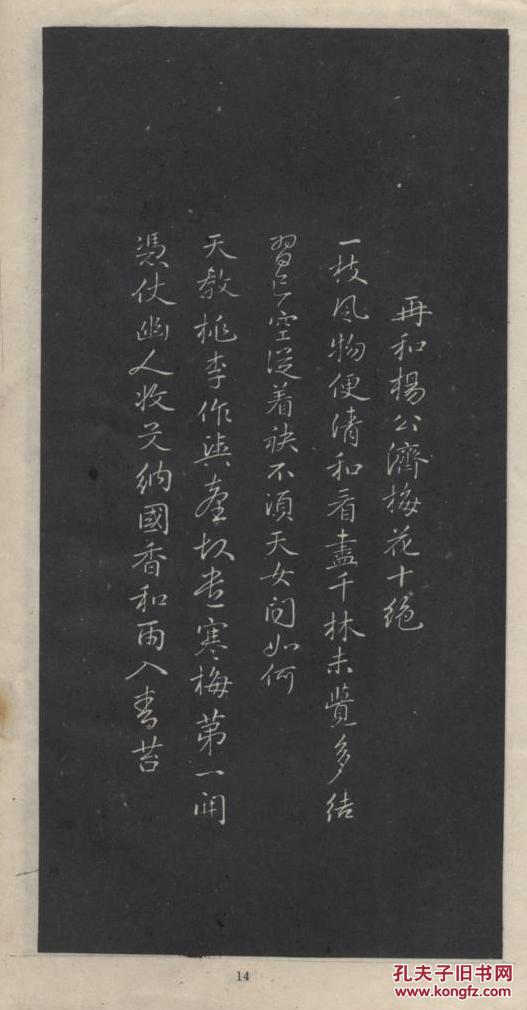 再和楊公濟梅花十絕
一枝風物便清和看盡千林未覺多結
習已空從着袂不須天女問如何
天教桃李作輿臺故遣寒梅第一開
憑仗幽人收艾納國香和雨入青苔
14
孔夫子旧书网
www.kongfz.com